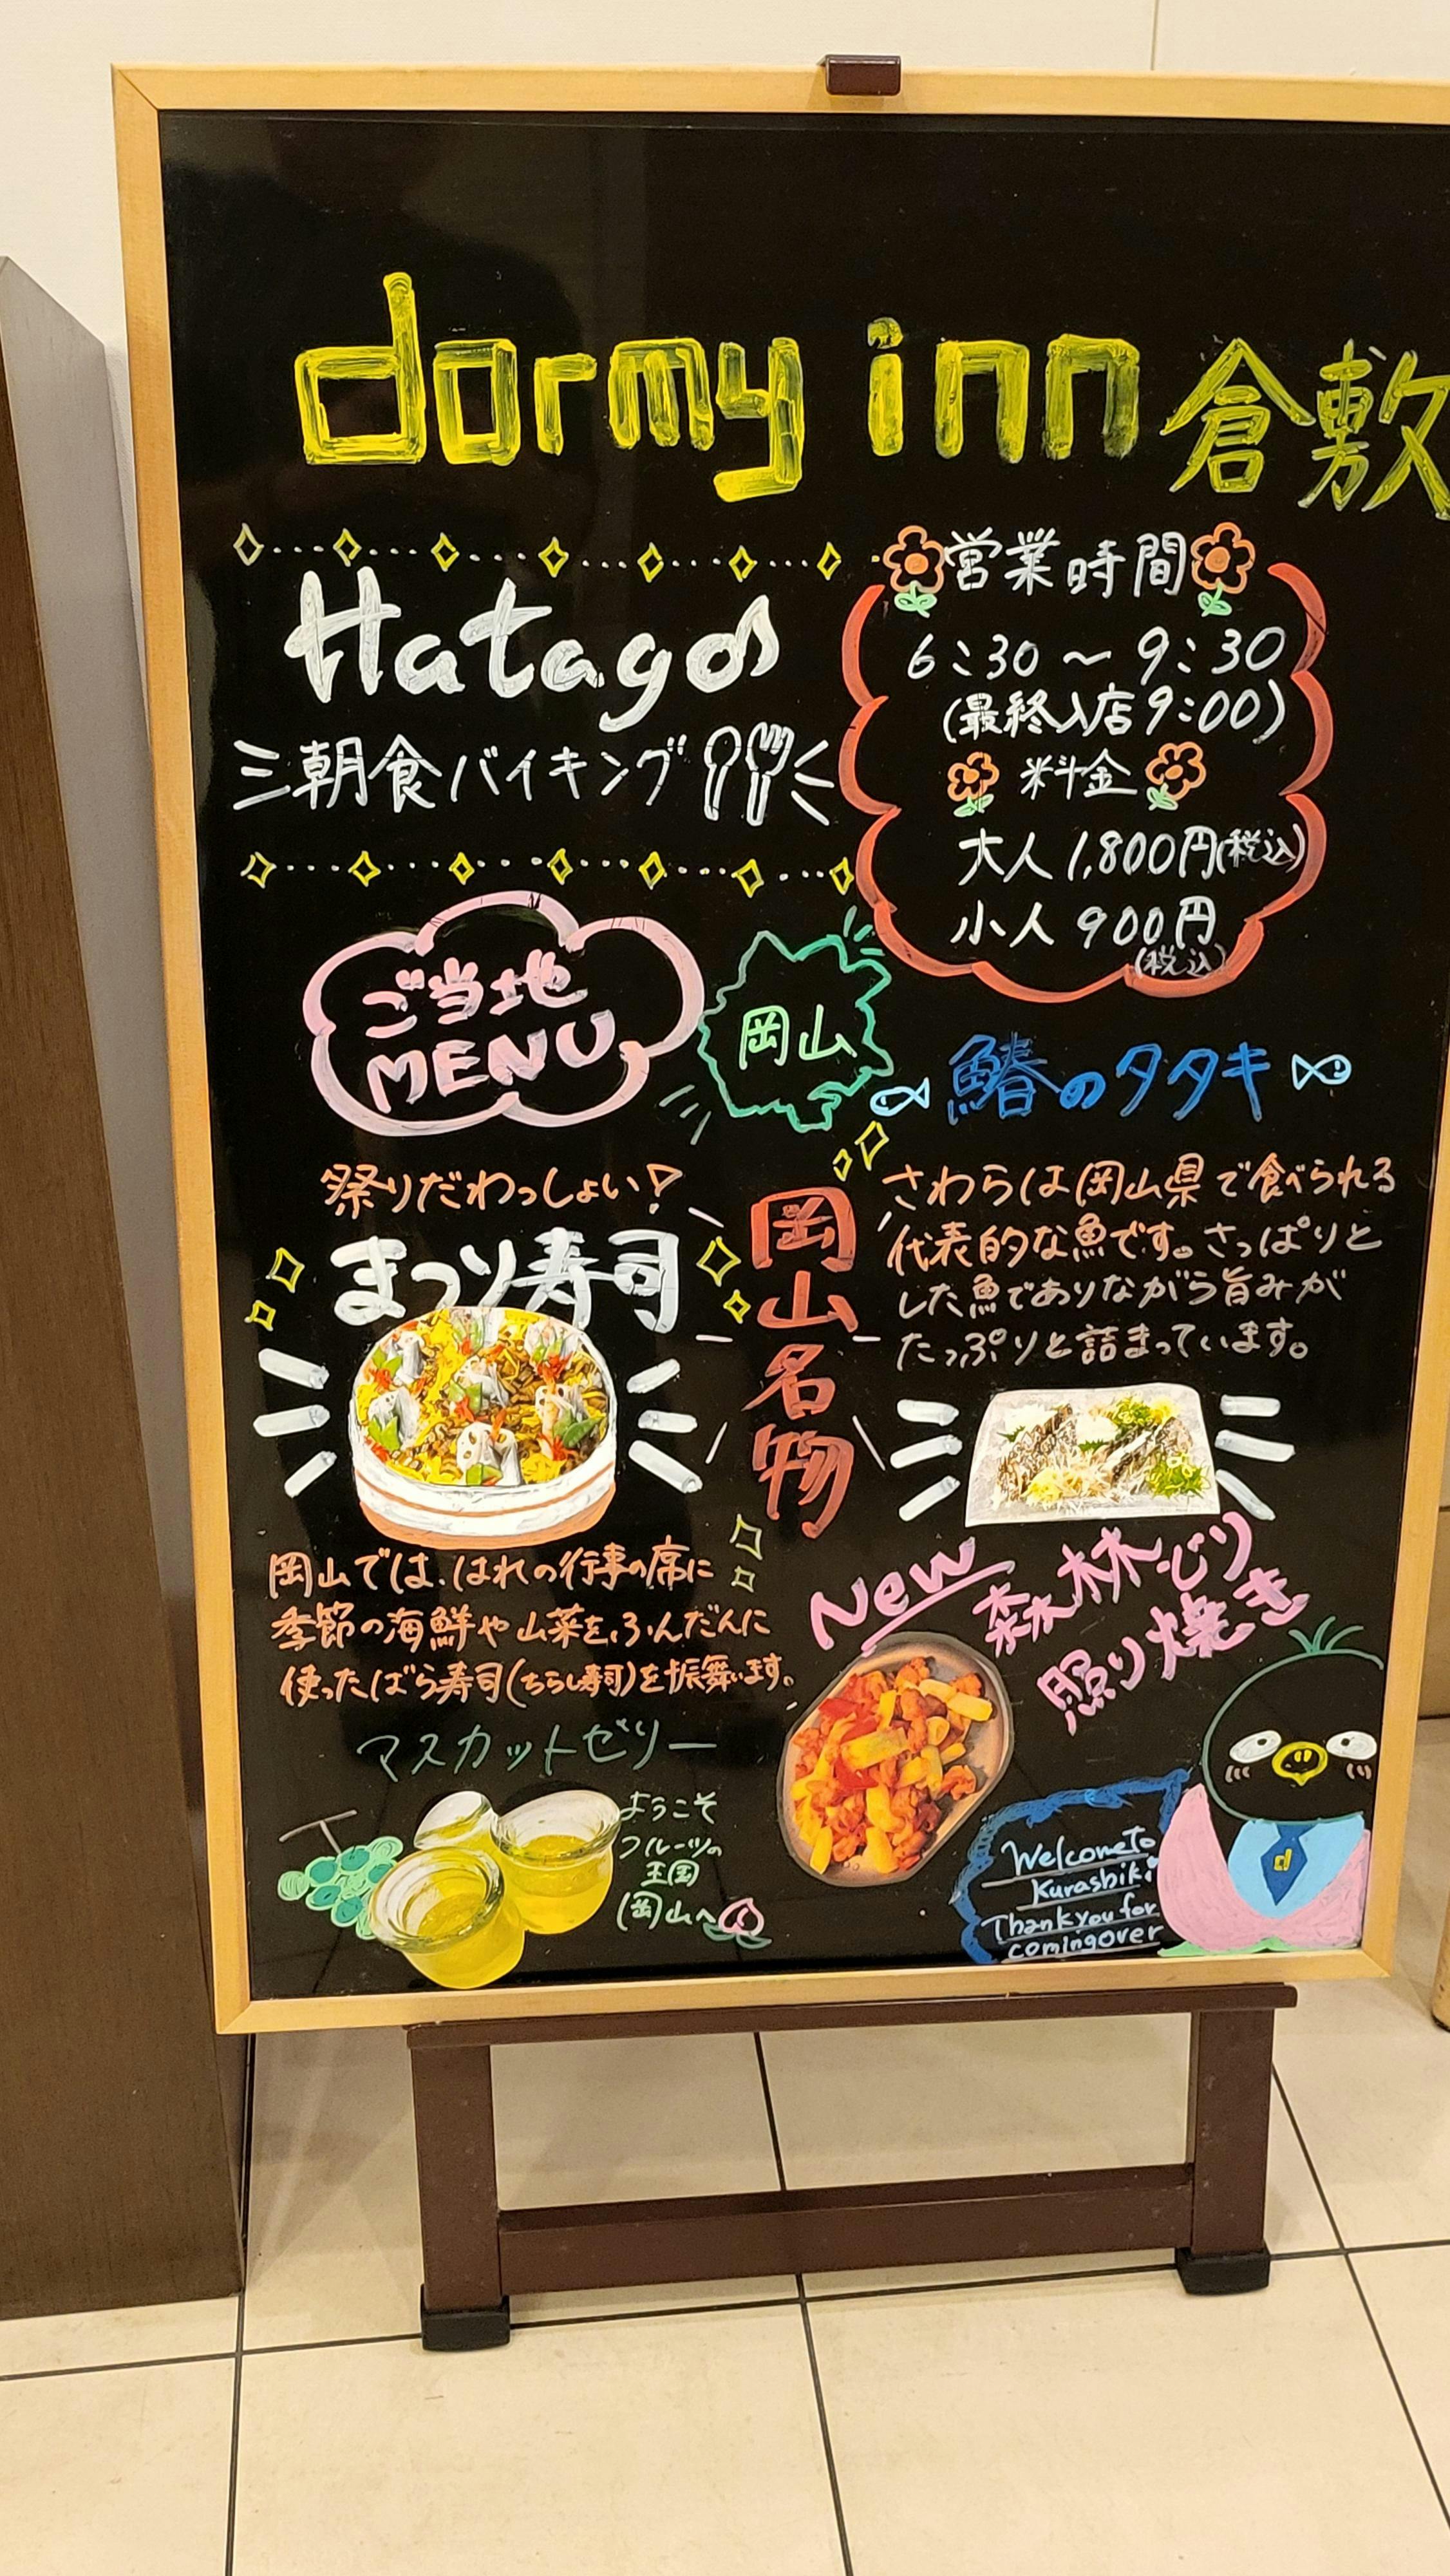 dormy inn 倉敷
Hatago
朝食バイキング
営業時間
6:30～9:30
(最終入店9:00)
料金
大人1,800円(税込)
小人900円
(税込)
ご当地
MENU
岡山
鰆のタタキ
さわらは岡山県で食べられる
代表的な魚です。さっぱりと
した魚でありながら旨みが
たっぷりと詰まっています。
岡山名物
祭りだわっしょい！
まつり寿司
岡山では、はれの行事の席に
季節の海鮮や山菜を、ふんだんに
使ったばら寿司(ちらし寿司)を振舞います。
New
森林どり
照り焼き
マスカットゼリー
ようこそ
フルーツの
王国
岡山へ
Welcome To
Kurashiki
Thank you for
coming over
d